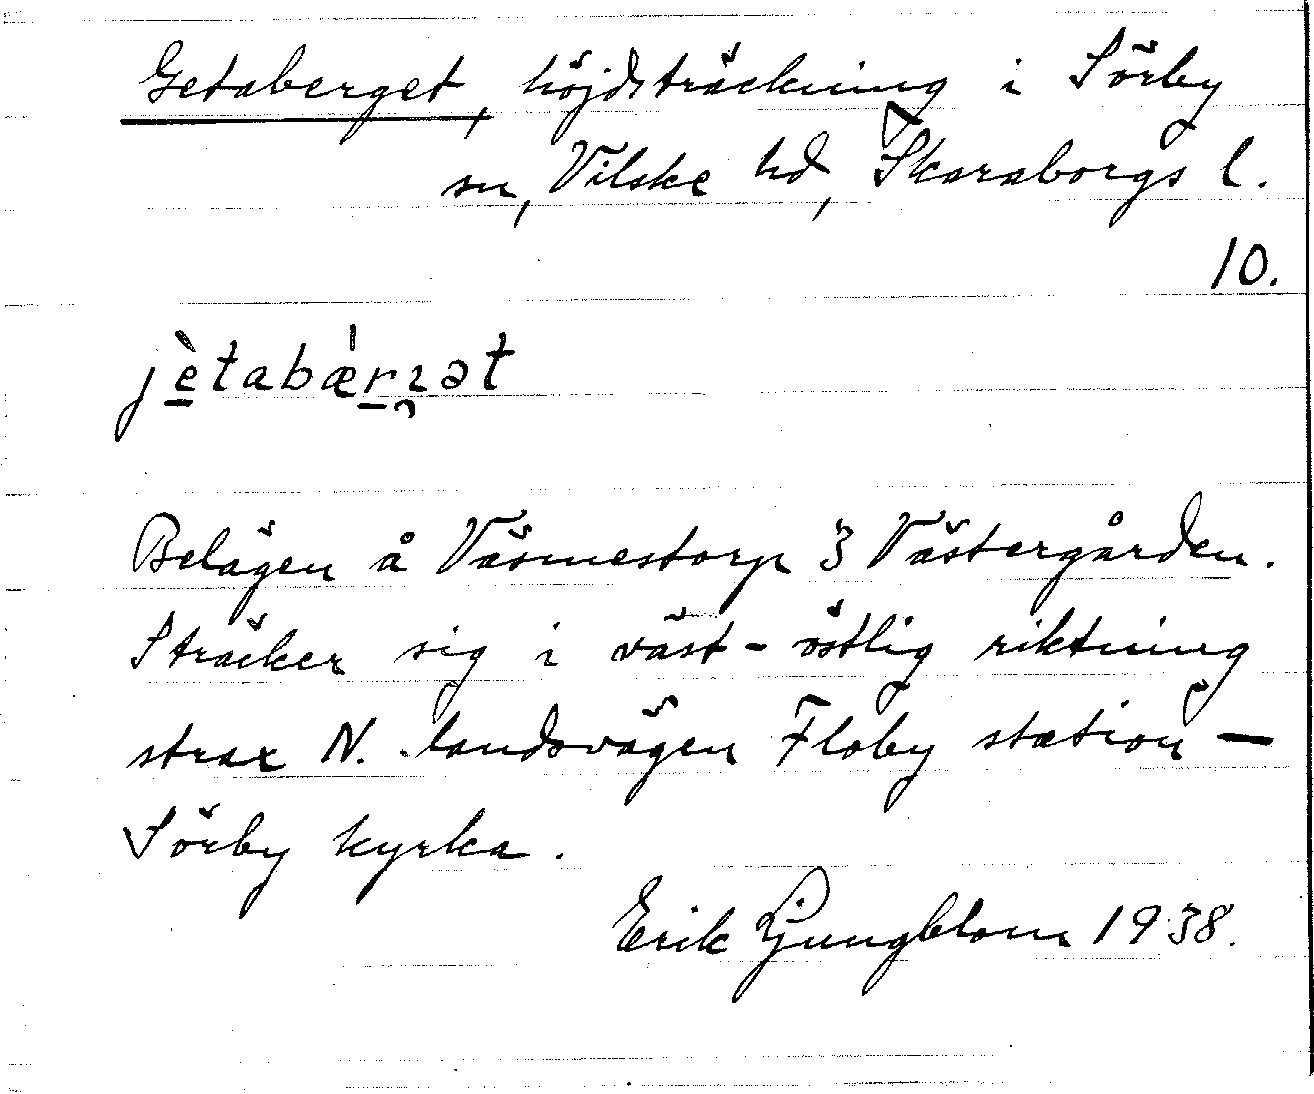 Getaberget, höjdsträckning i Sörby
sn, Vilske hd, Skaraborgs l.
10.
jètabǽrɂət
Belägen å Väsmestorp 3 Västergården.
Sträcker sig i väst-östlig riktning
strax N. landsvägen Floby station —
Sörby kyrka.
Erik Ljungblom 1938.